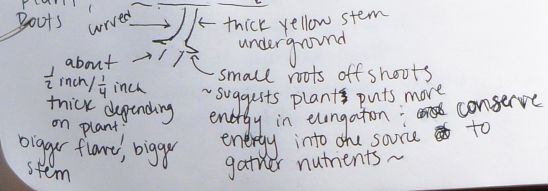 Roots
curved
thick yellow stem
underground
about
1/2 inch/1/4 inch
thick depending
on plant!
bigger flower, bigger
stem
small roots off shoots
~suggests plants puts more
energy in elongation ; conserve
energy into one source to
gather nutrients~